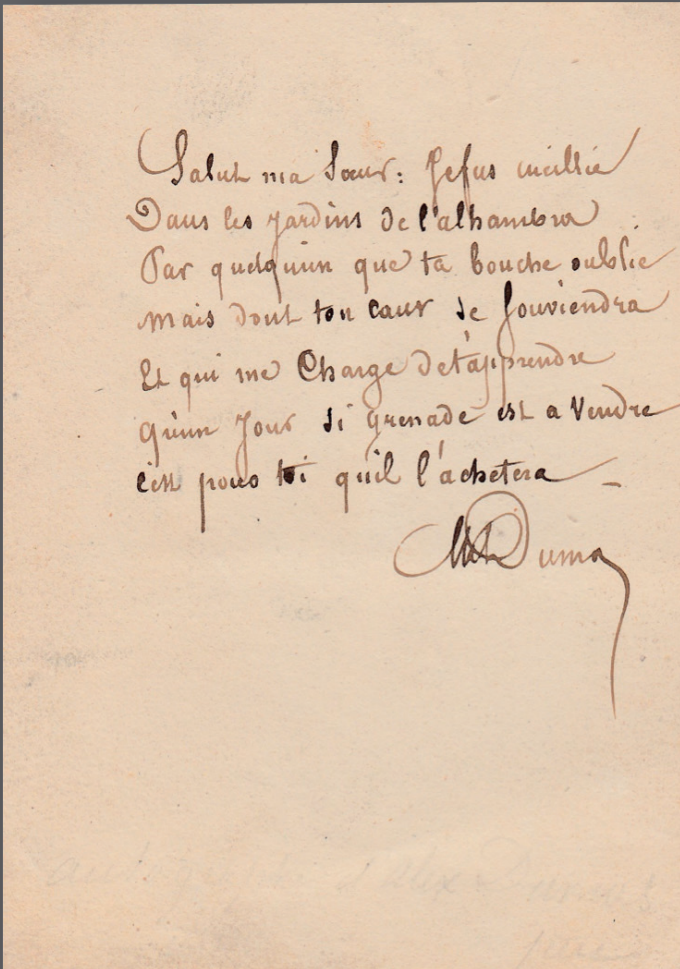 Salut ma Sœur: Je fus cueillie
Dans les jardins de l'alhambra
Par quelquun que ta bouche oublie
Mais dont ton cœur se souviendra
Et qui me Charge de t'apprendre
qu'un jour si grenade est a Vendre
c'est pour toi quil l'achetera –
Alex Dumas
autographe d'alex Dumas
père